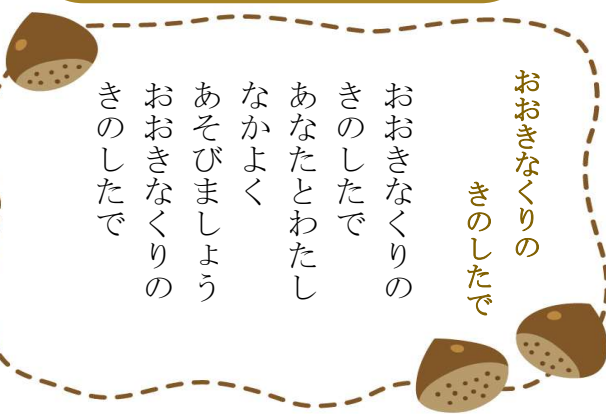 おおきなくりの
きのしたで
おおきなくりの
きのしたで
あなたとわたし
なかよく
あそびましょう
おおきなくりの
きのしたで